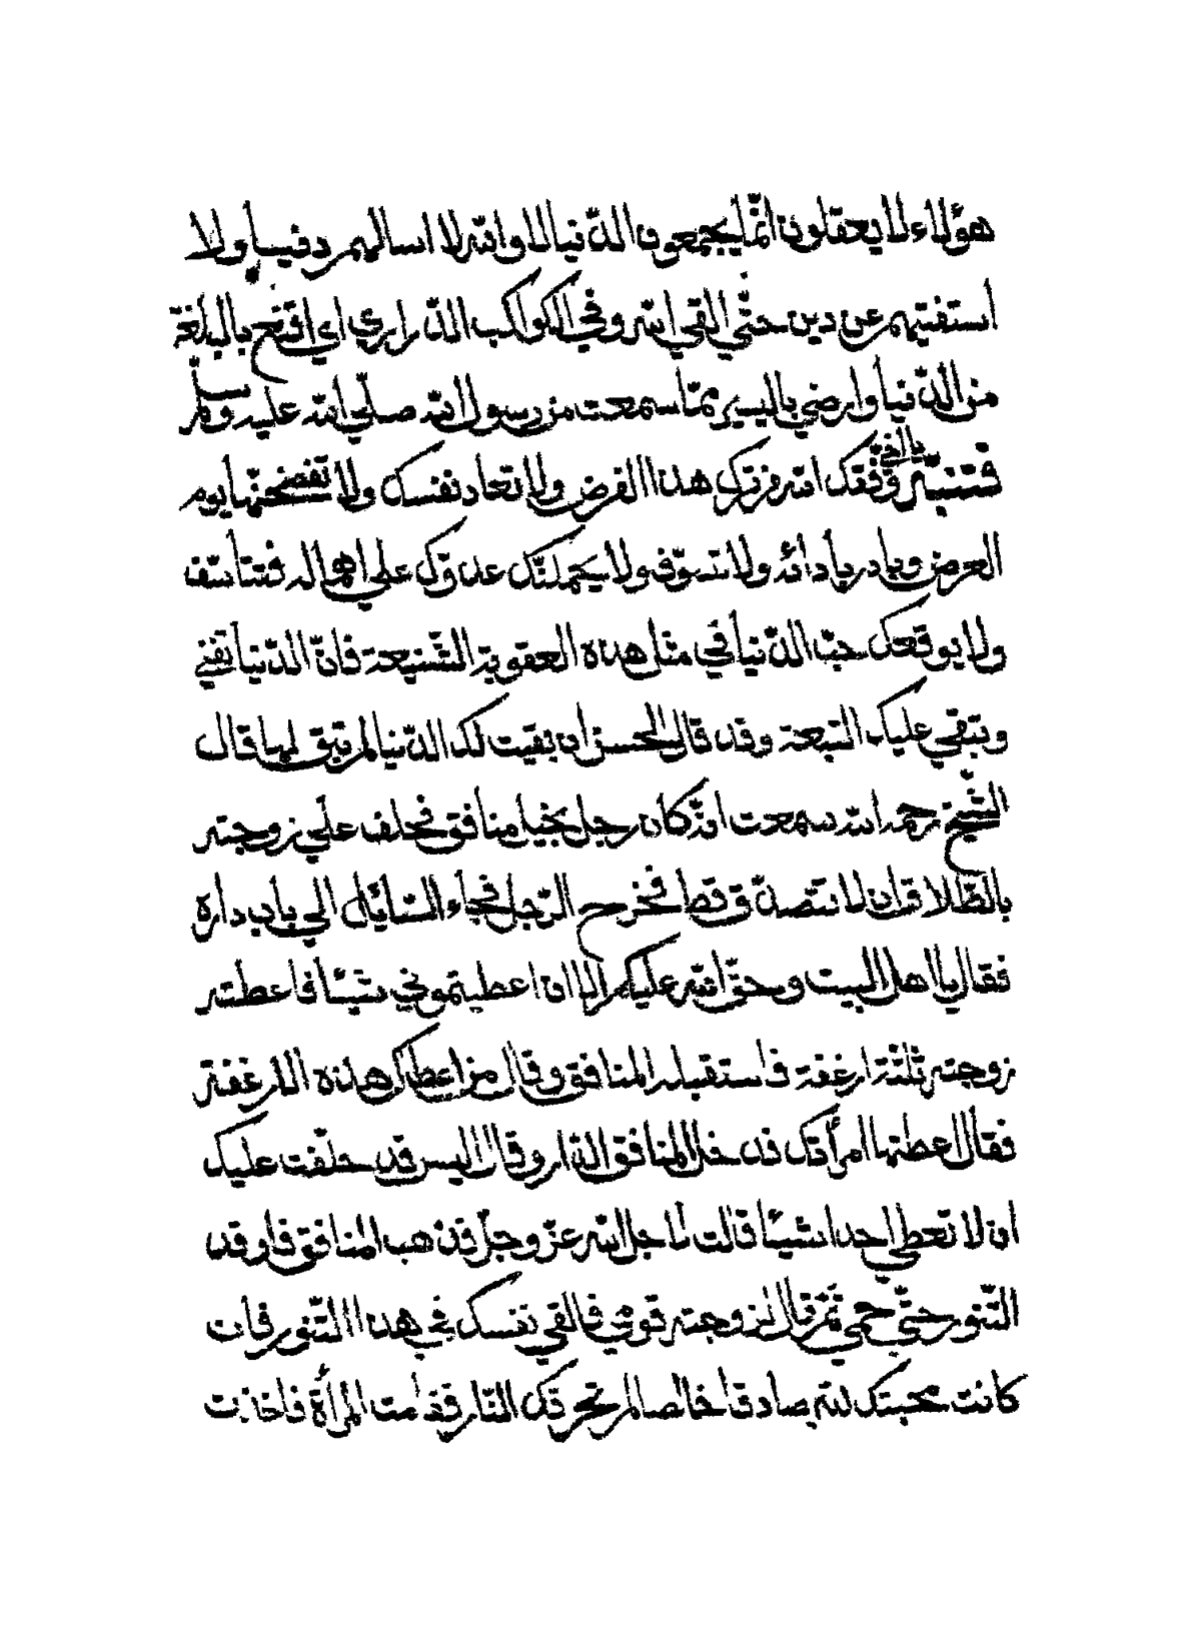 هؤلاء لا يعقلون انّما يجمعون الدّنيا لا والله لا اسالهم دنيا ولا
استفتيهم عن دين حتّي القي الله وفي الكواكب الدّراري اي اقنع بالبلغة
من الدّنيا وارضي باليسير ممّا سمعت من رسول الله صلّي الله عليه وسلّم
فتنبّه وفّقك الله من ترك هذا الفرض ولا تعاد نفسك ولا تفضحنّها يوم
العرض وبادر بادائه ولا تسوّف ولا يحملنّك عدوّك علي اهماله فتتأسّف
ولا يوقعك حبّ الدّنيا في مثل هذه العقوبة الشّنيعة فانّ الدّنيا تفني
وتبقي عليك التبعة وقد قال الحسن ان بقيت لك الدّنيا لم تبق لها قال
الشّيخ رحمه الله سمعت انّه كان رجل بخيل منافق فحلف علي زوجته
بالطّلاق ان لا تتصدّق قط فخرج الرّجل فجاء السّائل الي باب داره
فقال يا اهل البيت وحقّ الله عليكم الا ان اعطيتموني شيئا فاعطته
زوجته ثلثة ارغفة فاستقبله المنافق وقال من اعطاك هذه الارغفة
فقال اعطتها امرأتك فدخل المنافق الدّار وقال اليس قد حلفت عليك
ان لا تعطي احدا شيئا قالت لاجل الله عزّ وجلّ فذهب المنافق فاوقد
التّنور حتّي حمي ثم قال لزوجته قومي فالقي نفسك في هذا التّنور فان
كانت محبتك لله صادقا خالصا لم تحرقك النّار فقامت المرأة فاخذت